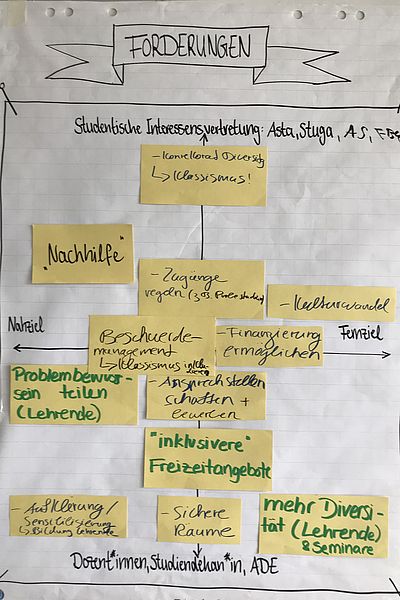 FORDERUNGEN
Studentische Interessensvertretung: Asta, Stuga, AS,
- Konrektorat Diversity
↳ Klassismus!
"Nachhilfe"
- Zugänge
regeln
- Kulturwandel
Nahziel
Fernziel
Beschwerde-
management
↳ Klassismus
- Finanzierung
ermöglichen
Problembewus-
sein teilen
(Lehrende)
- Ansprechstellen
schaffen +
bewerben
"inklusivere"
Freizeitangebote
- Aufklärung/
Sensibilisierung
↳ Bildung Lehrende
- Sichere
Räume
mehr Diversi-
tät (Lehrende)
& Seminare
Dozent*innen, Studiendekan*in, ADE